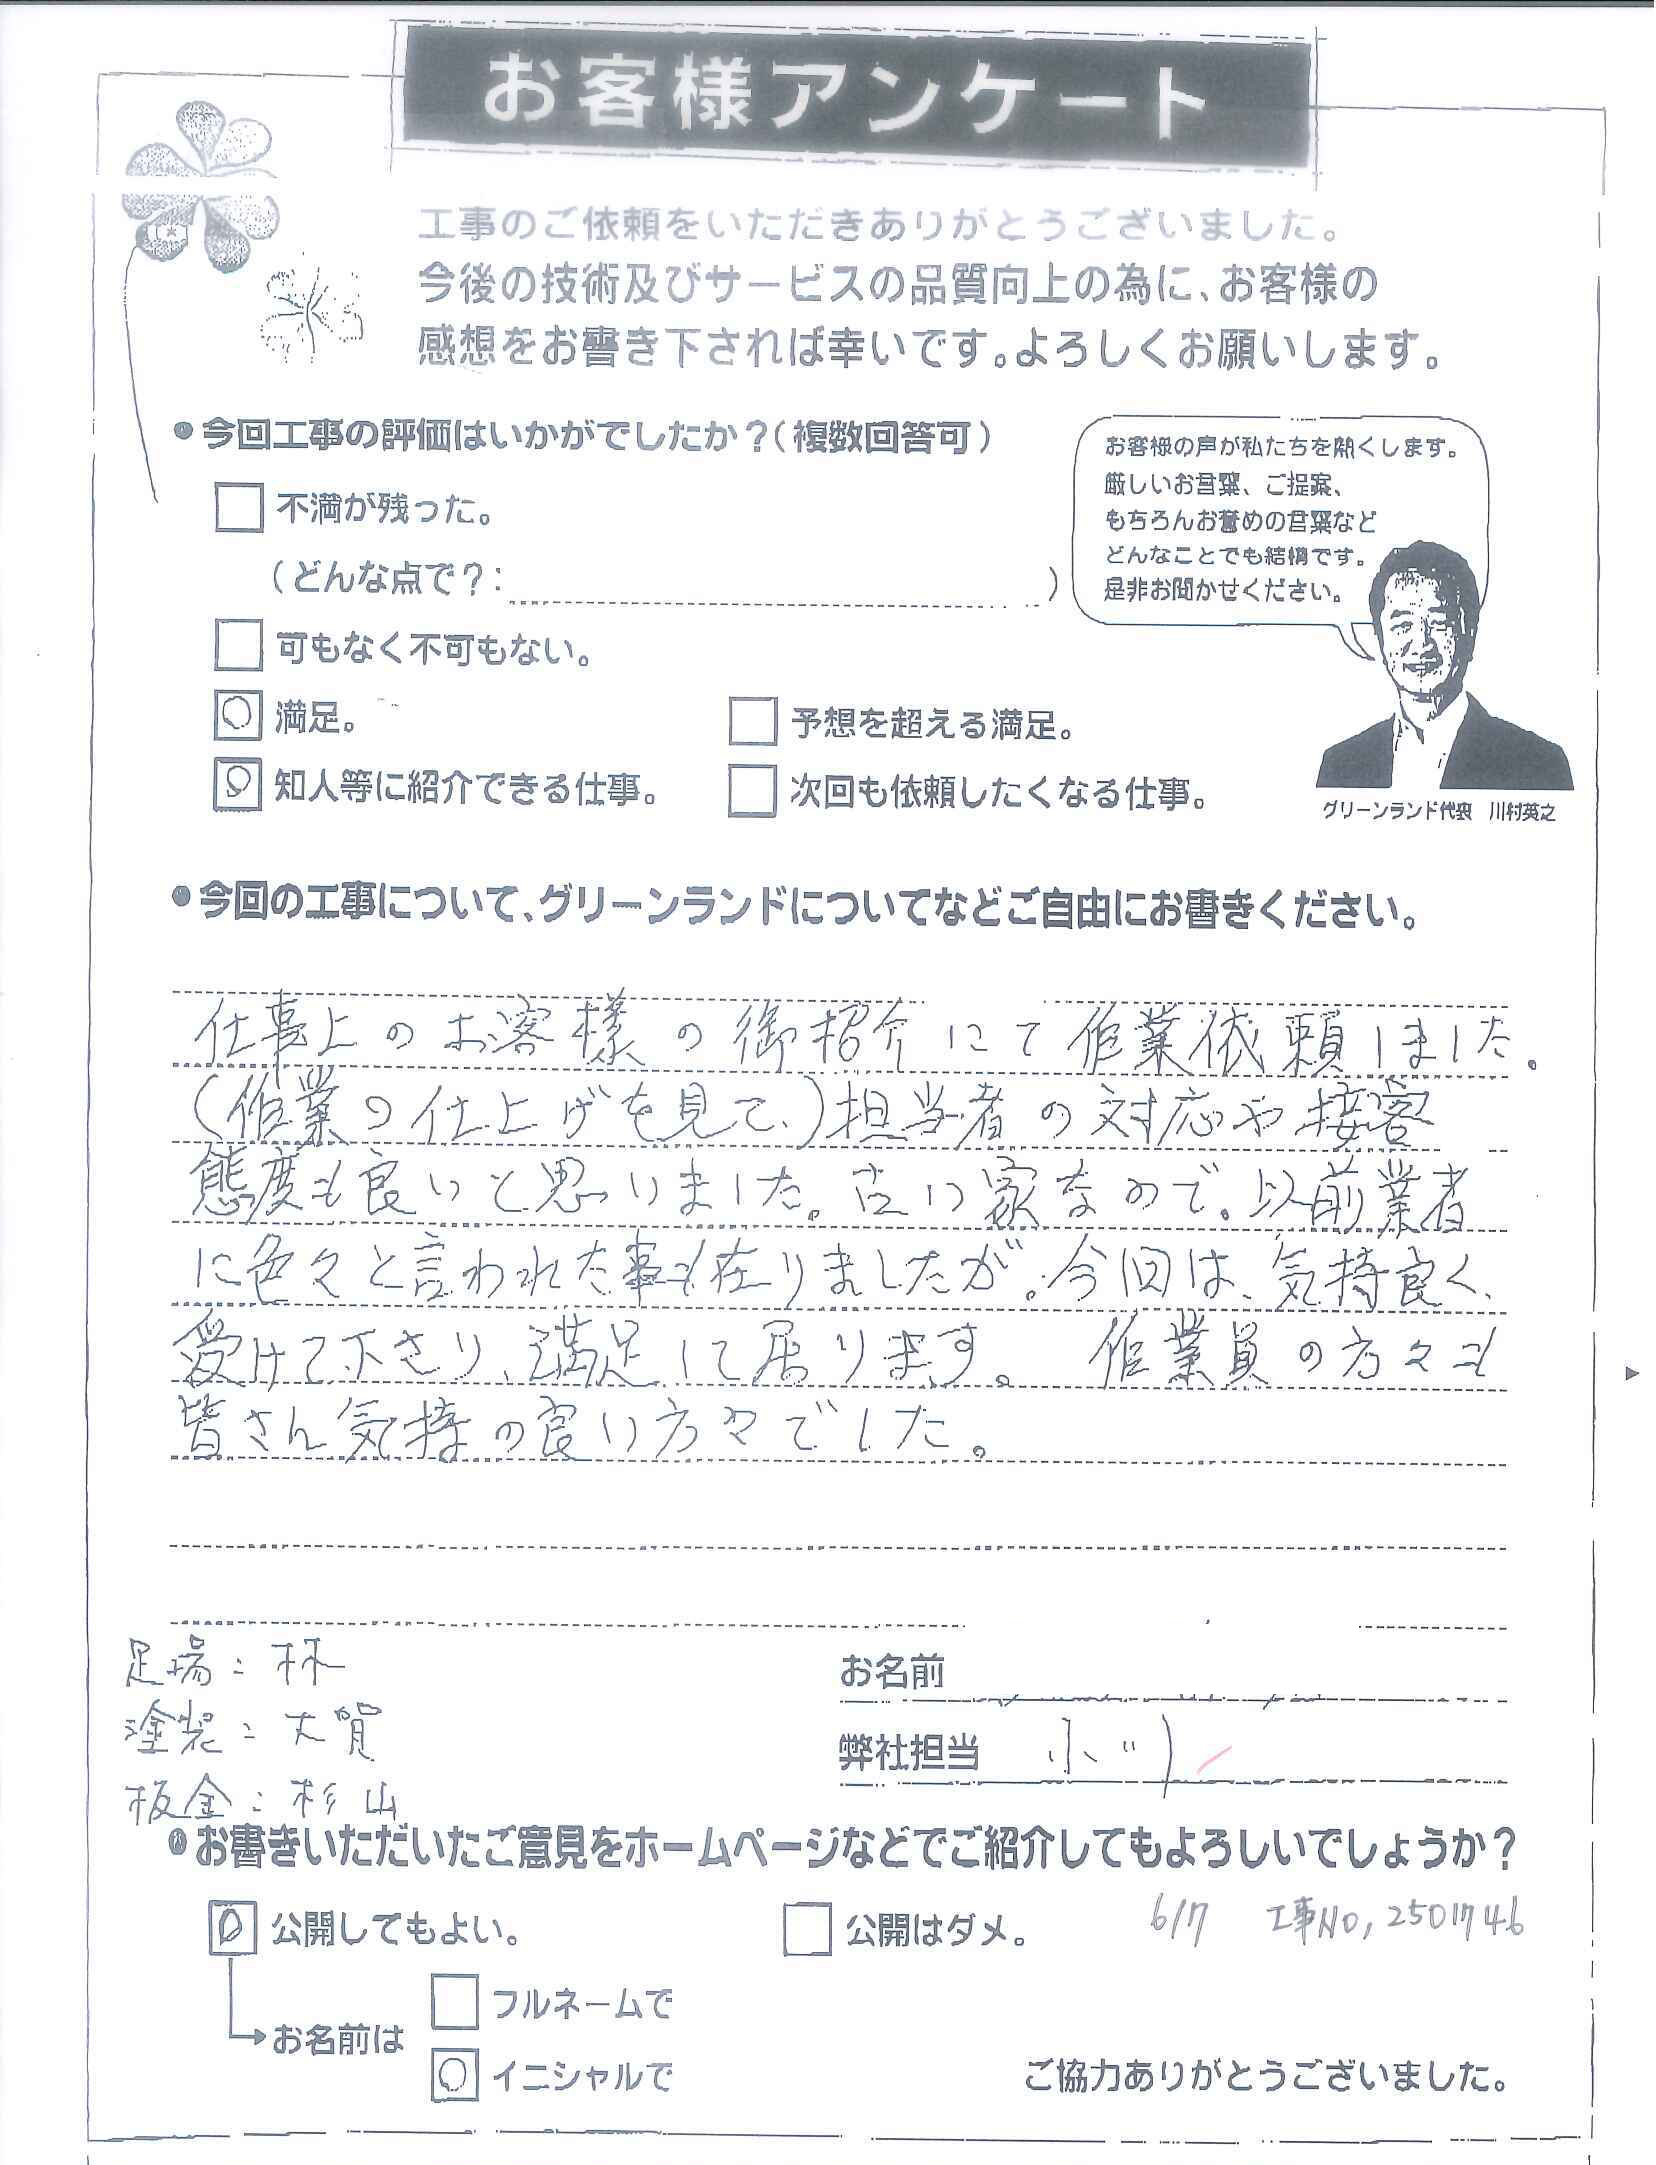 お客様アンケート
工事のご依頼をいただきありがとうございました。
今後の技術及びサービスの品質向上の為に、お客様の
感想をお書き下されば幸いです。よろしくお願いします。
●今回工事の評価はいかがでしたか？（複数回答可）
お客様の声が私たちを熱くします。
厳しいお言葉、ご提案、
もちろんお誉めの言葉など
どんなことでも結構です。
是非お聞かせください。
不満が残った。
（どんな点で？：　）
可もなく不可もない。
○ 満足。
予想を超える満足。
○ 知人等に紹介できる仕事。
次回も依頼したくなる仕事。
グリーンランド代表　川村英之
●今回の工事について、グリーンランドについてなどご自由にお書きください。
仕事上のお客様の御紹介にて作業依頼しました。
(作業の仕上げを見て、)担当者の対応や接客
態度も良いと思いました。古い家なので。以前業者
に色々と言われた事も在りましたが。今回は、気持良く、
受けて下さり、満足して居ります。　作業員の方々も
皆さん気持の良い方々でした。
足場：林
塗装：大賀
板金：杉山
お名前
弊社担当　小川
●お書きいただいたご意見をホームページなどでご紹介してもよろしいでしょうか？
○ 公開してもよい。
公開はダメ。
6/7　工事No, 2501746
お名前は
フルネームで
○ イニシャルで
ご協力ありがとうございました。